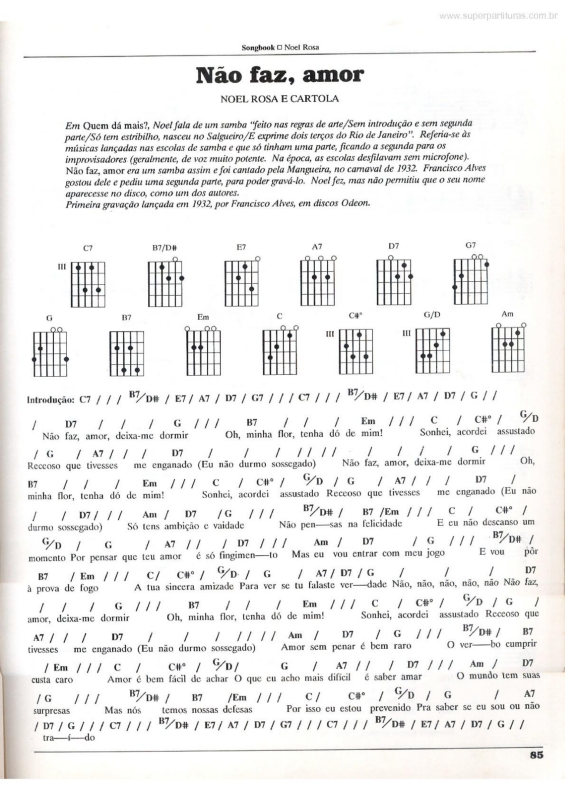 www.superpartituras.com.br
Songbook □ Noel Rosa
Não faz, amor
NOEL ROSA E CARTOLA
Em Quem dá mais?, Noel fala de um samba "feito nas regras de arte/Sem introdução e sem segunda
parte/Só tem estribilho, nasceu no Salgueiro/E exprime dois terços do Rio de Janeiro". Referia-se às
músicas lançadas nas escolas de samba e que só tinham uma parte, ficando a segunda para os
improvisadores (geralmente, de voz muito potente. Na época, as escolas desfilavam sem microfone).
Não faz, amor era um samba assim e foi cantado pela Mangueira, no carnaval de 1932. Francisco Alves
gostou dele e pediu uma segunda parte, para poder gravá-lo. Noel fez, mas não permitiu que o seu nome
aparecesse no disco, como um dos autores.
Primeira gravação lançada em 1932, por Francisco Alves, em discos Odeon.
C7 B7/D# E7 A7 D7 G7
III
G B7 Em C C#° G/D Am
III III
Introdução: C7 / / / B7/D# / E7 / A7 / D7 / G7 / / / C7 / / / B7/D# / E7 / A7 / D7 / G / /
/ D7 / / / G / / / B7 / / / Em / / / C / C#° / G/D
Não faz, amor, deixa-me dormir Oh, minha flor, tenha dó de mim! Sonhei, acordei assustado
/ G / A7 / / / D7 / / / / / / / / / / / G / / /
Receoso que tivesses me enganado (Eu não durmo sossegado) Não faz, amor, deixa-me dormir Oh,
B7 / / / Em / / / C / C#° / G/D / G / A7 / / / D7 /
minha flor, tenha dó de mim! Sonhei, acordei assustado Receoso que tivesses me enganado (Eu não
/ / D7 / / / Am / D7 / G / / / B7/D# / B7 / Em / / / C / C#° /
durmo sossegado) Só tens ambição e vaidade Não pen—sas na felicidade E eu não descanso um
G/D / G / A7 / / / D7 / / / Am / D7 / G / / / B7/D# /
momento Por pensar que teu amor é só fingimen—to Mas eu vou entrar com meu jogo E vou pôr
B7 / Em / / / C / C#° / G/D / G / A7 / D7 / G / / / / D7
à prova de fogo A tua sincera amizade Para ver se tu falaste ver—dade Não, não, não, não, não Não faz,
/ / / G / / / B7 / / / Em / / / C / C#° / G/D / G /
amor, deixa-me dormir Oh, minha flor, tenha dó de mim! Sonhei, acordei assustado Receoso que
A7 / / / D7 / / / / / / / Am / D7 / G / / / B7/D# / B7
tivesses me enganado (Eu não durmo sossegado) Amor sem penar é bem raro O ver—bo cumprir
/ Em / / / C / C#° / G/D / G / A7 / / / D7 / / / Am / D7
custa caro Amor é bem fácil de achar O que eu acho mais difícil é saber amar O mundo tem suas
/ G / / / B7/D# / B7 / Em / / / C / C#° / G/D / G / A7
surpresas Mas nós temos nossas defesas Por isso eu estou prevenido Pra saber se eu sou ou não
/ D7 / G / / / C7 / / / B7/D# / E7 / A7 / D7 / G7 / / / C7 / / / B7/D# / E7 / A7 / D7 / G / /
tra—í—do
85